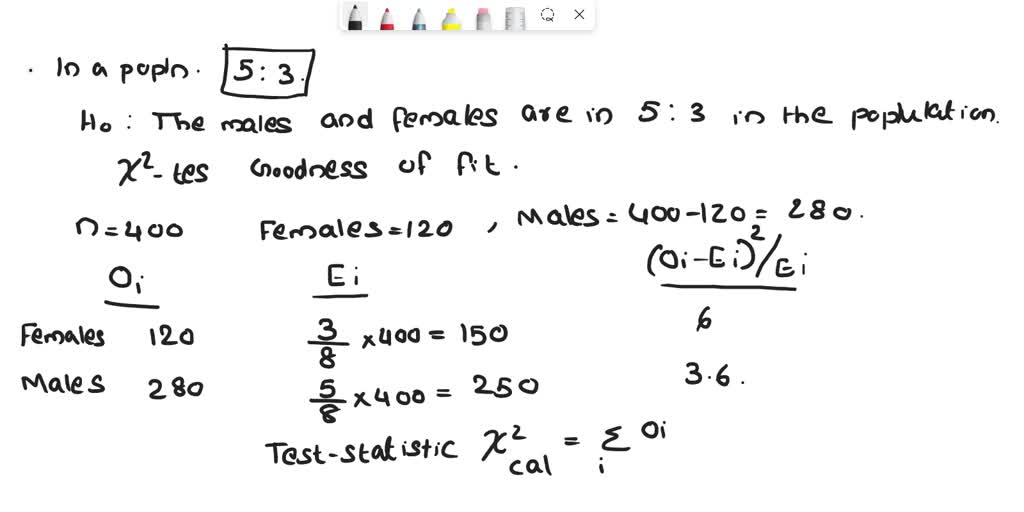 . In a popln. 5:3.
H₀ : The males and females are in 5:3 in the population.
χ²-tes Goodness of fit.
n=400 Females=120 , Males=400-120=280.
Oi Ei (Oi-Ei)²/Ei
Females 120 3/8 ×400= 150 6
Males 280 5/8 ×400= 250 3.6.
Test-statistic χ²cal = Σi Oi